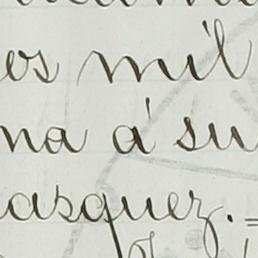 es mil
na á su
asquez.=